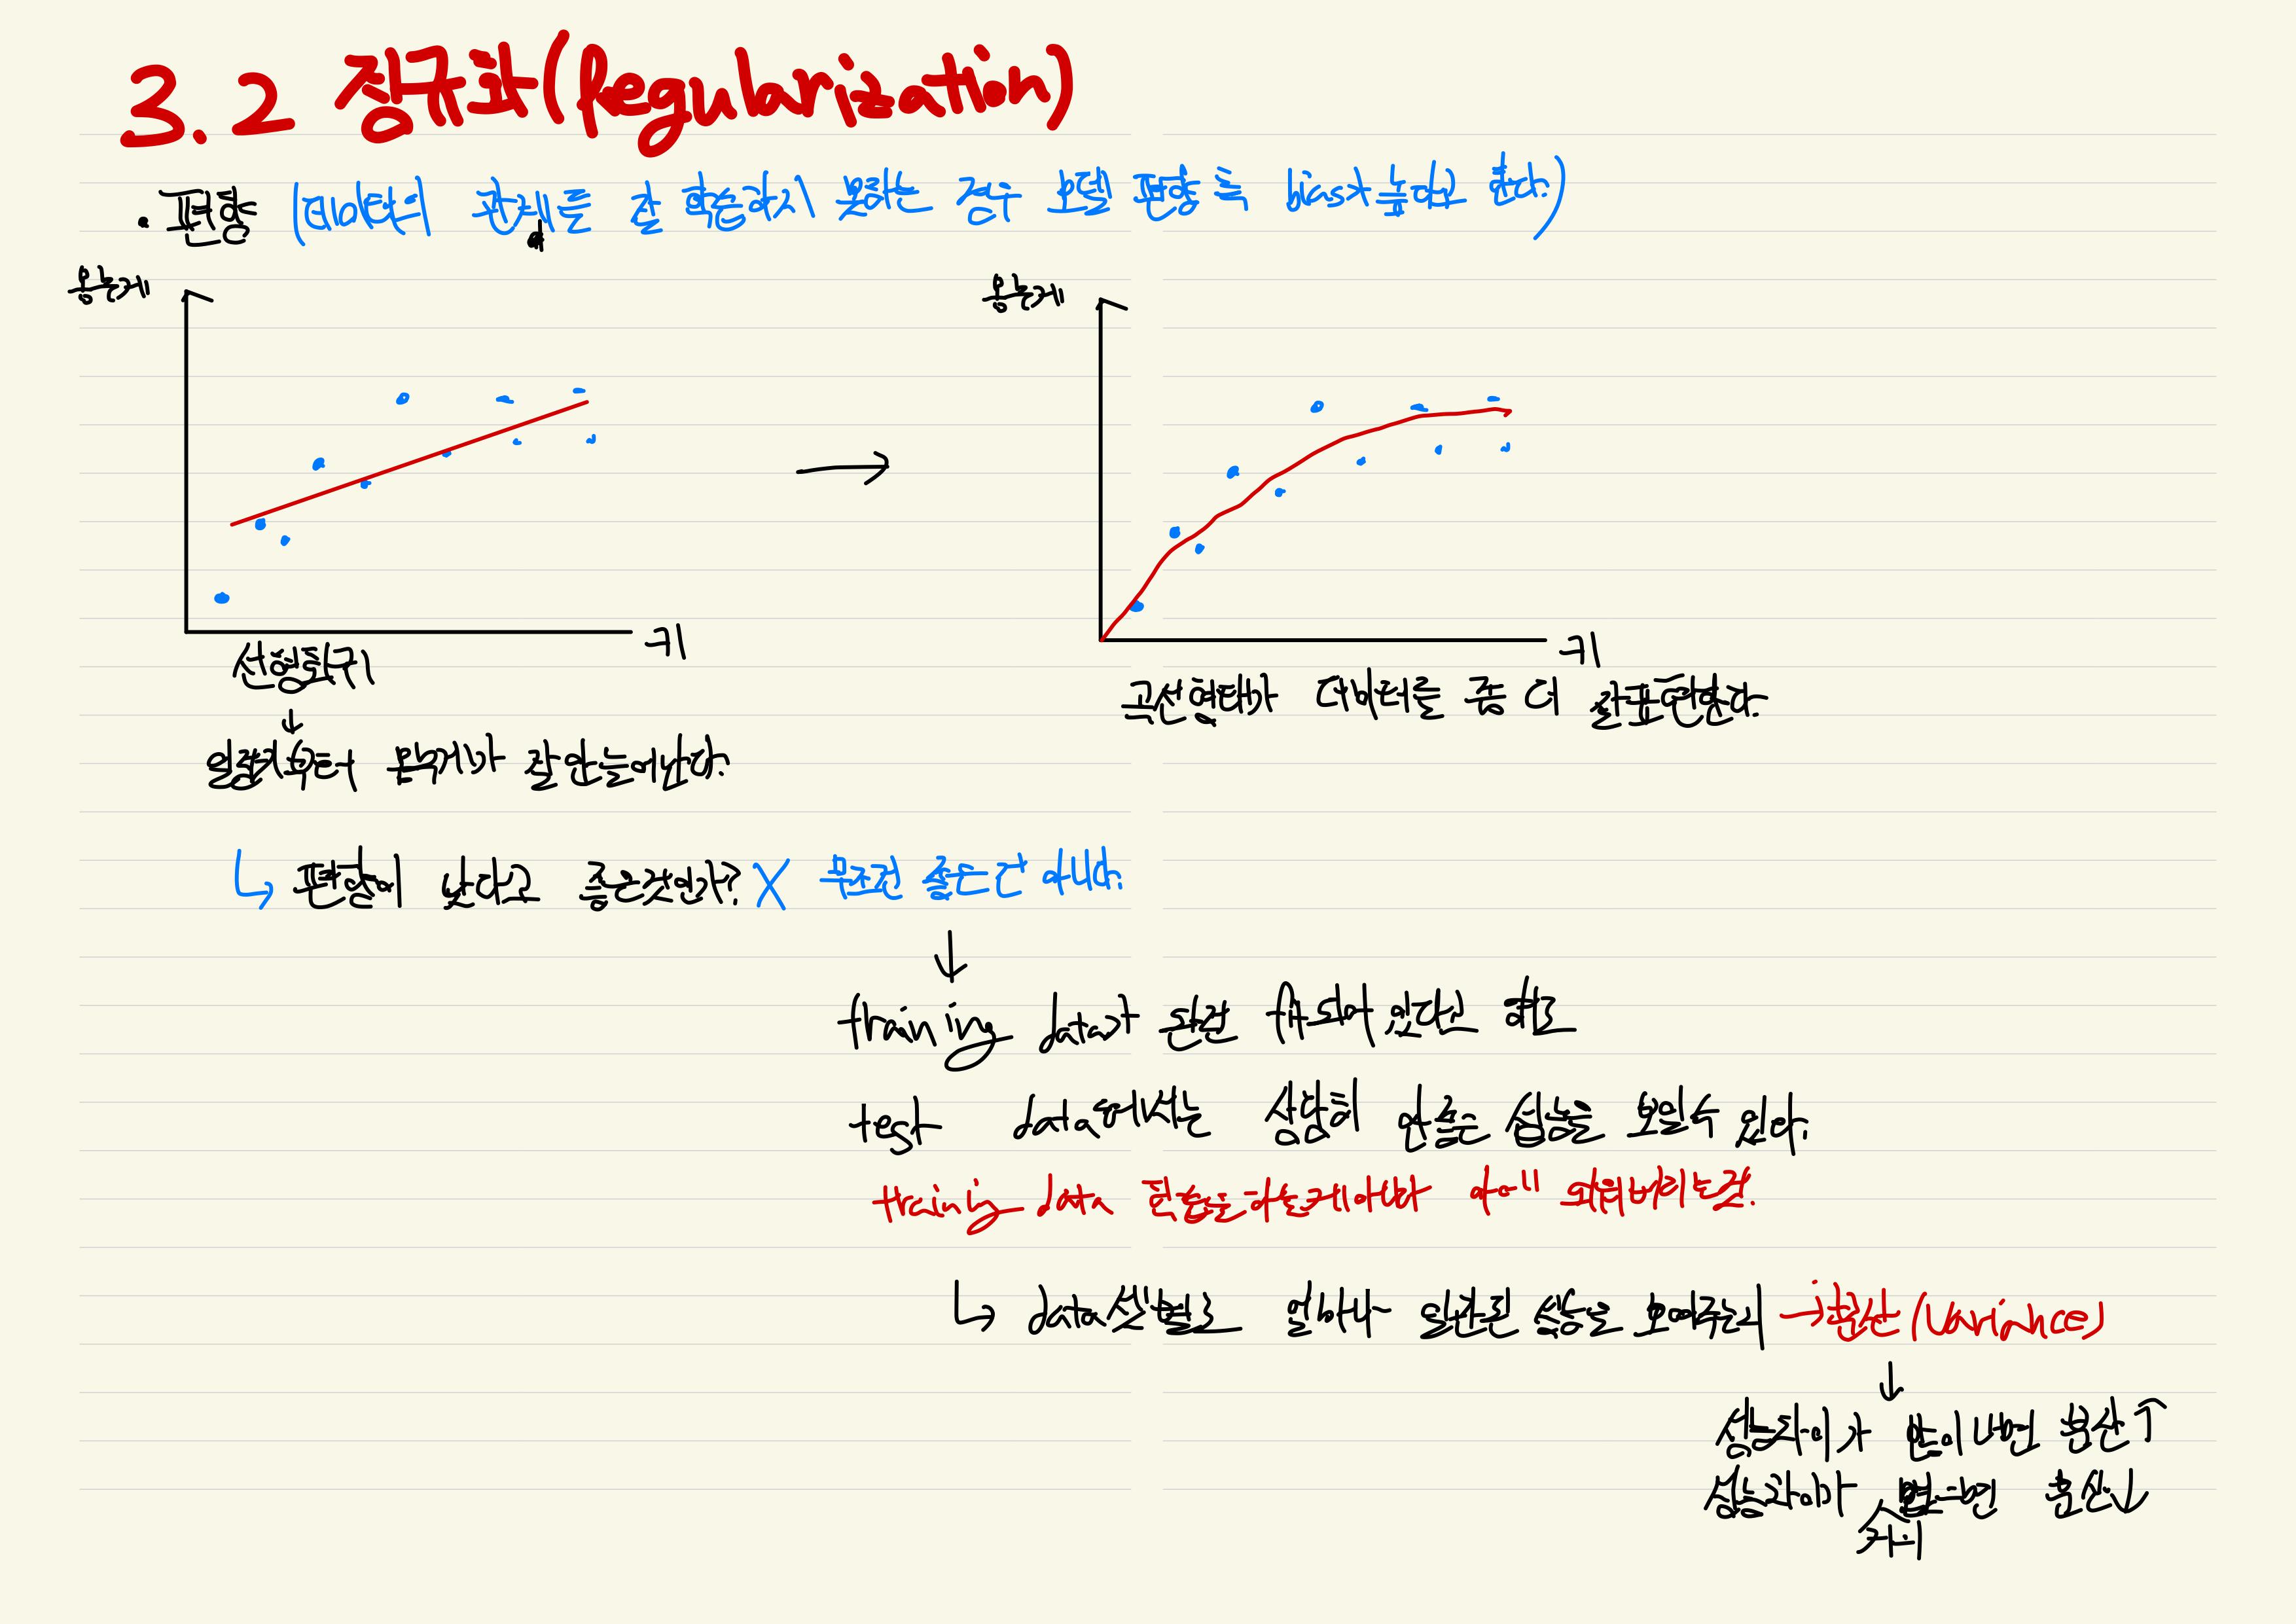 3.2 정규화(Regularization)
· 편향 (데이터의 관계를 잘 학습하지 못하는 경우 모델 편향 즉 bias가 높다고 한다.)
몸무게
몸무게
키
키
선형회귀
곡선형태가 데이터를 좀 더 잘표현한다.
↓
일정키부터 몸무게가 잘안늘어난다.
↳ 편향이 낮다고 좋은것인가? X 무조건 좋은건 아니다.
↓
training data가 완전 fit되어 있다고 해도
test data에서는 상당히 안좋은 성능을 보일수 있다.
training data 학습을하는게아니라 아예 외워버리는것.
↳ data셋별로 얼마나 일관된 성능을 보여주는지 → 분산(Variance)
↓
성능차이가 많이나면 분산↑
성능차이가 별로없으면 분산↓